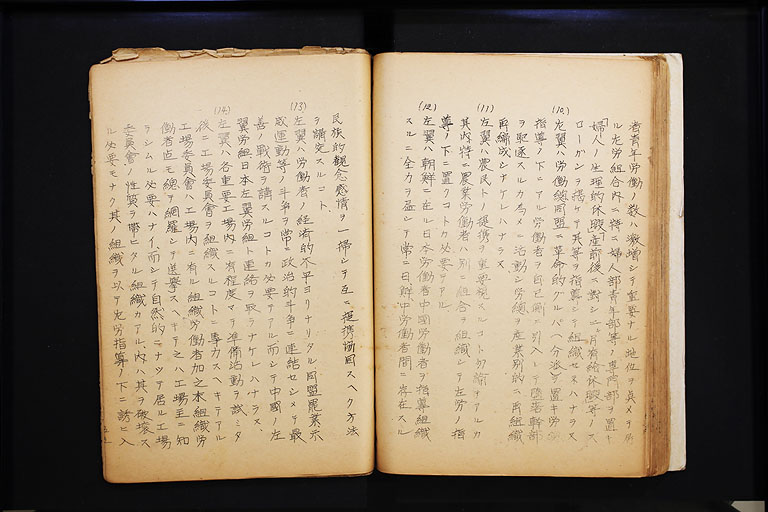 者青年労働ノ数ハ激増シテ重要ナル地位ヲ占メヲ
ル左労組合内ニ特ニ婦人部青年部等ノ専門部ヲ置キ
「婦人ノ生理的休暇」「産前後ニ対シ二ヶ月有給休暇等ノス
ローガン」ヲ掲ケテ其等ヲ指導シ組織セネハナラス
(10) 左翼ハ労働総同盟ニ革命的グルッパヘ分派ヲ置キ労
指導ノ下ニアル労働者ヲ自己側ニ引入レテ堕落幹部
ヲ駆逐スルカ為メニ活動シ労総ヲ産業別的ニ再組織
再編成シナケレハナラス
(11) 左翼ハ農民トノ提携ヲ重要視スルコト勿論テアルカ
其内特ニ農業労働者ハ別ニ組合ヲ組織シテ左労ノ指
導ノ下ニ置クコトカ必要テアル
(12) 左翼ハ朝鮮ニ在ル日本労働者中國労働者ヲ指導組織
スルニ全力ヲ盡シテ常ニ日鮮中労働者間ニ存在スル
民族的観念感情ヲ一掃シテ互ニ提携協同スヘク方法
ヲ講究スルコト
(13) 左翼ハ労働者ノ経済的不平ヨリナリタル同盟罷業示
威運動等ノ斗争ヲ常ニ政治的斗争ニ連結セシメテ最
善ノ戦術ヲ講スルコトカ必要テアル、而シテ中國ノ左
翼労組日本左翼労組ト連結ヲ取ラナケレハナラス、
(14) 左翼ハ各重要工場内ニ有程度マテ準備活動ヲ試ミタ
後ニ工場委員會ヲ組織スルコトニ専力スヘキテアル
工場委員會ハ工場内ニ有ル組織労働者加之未組織労
働者迄モ総テ網羅シテ選挙スヘキテ之ハ工場主ニ知
ラシムル必要ハナイ、而シテ自然的ニナツテ居ル工場
委員會ノ性質ヲ帯ヒタル組織カアル内ハ其ヲ破壊ス
ル必要モナク其ノ組織ヲ以テ左労指導ノ下ニ誘ヒ入